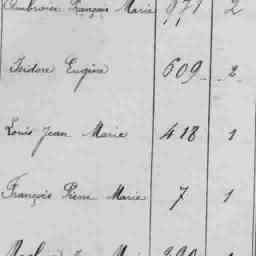 Ambroise François Marie 971 2
Isidore Eugène 609 2
Louis Jean Marie 418 1
François Pierre Marie 7 1